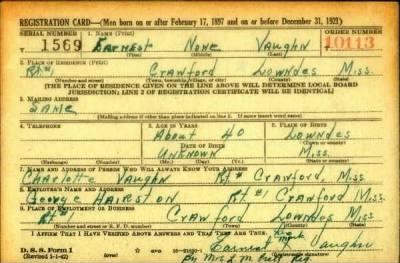 REGISTRATION CARD—(Men born on or after February 17, 1897 and on or before December 31, 1921)
SERIAL NUMBER 1. NAME (Print) ORDER NUMBER
T 1569 EARNEST NONE VAUGHN 10113
(First) (Middle) (Last)
2. PLACE OF RESIDENCE (Print)
Rt #1 CRAWFORD LOWNDES MISS.
(Number and street) (Town, township, village, or city) (County) (State)
[THE PLACE OF RESIDENCE GIVEN ON THE LINE ABOVE WILL DETERMINE LOCAL BOARD
JURISDICTION; LINE 2 OF REGISTRATION CERTIFICATE WILL BE IDENTICAL]
3. MAILING ADDRESS
SAME
[Mailing address if other than place indicated on line 2. If same insert word same]
4. TELEPHONE 5. AGE IN YEARS 6. PLACE OF BIRTH
About 40 LOWNDES
DATE OF BIRTH (Town or county)
UNKNOWN MISS.
(Exchange) (Number) (Mo.) (Day) (Yr.) (State or country)
7. NAME AND ADDRESS OF PERSON WHO WILL ALWAYS KNOW YOUR ADDRESS
CHARLOTTE VAUGHN Rt #1 CRAWFORD, MISS.
8. EMPLOYER'S NAME AND ADDRESS
GEORGE HAIRSTON Rt #1 CRAWFORD MISS.
9. PLACE OF EMPLOYMENT OR BUSINESS
Rt #1 CRAWFORD LOWNDES MISS.
(Number and street or R. F. D. number) (Town) (County) (State)
I AFFIRM THAT I HAVE VERIFIED ABOVE ANSWERS AND THAT THEY ARE TRUE.
D. S. S. Form 1 Earnest Vaughn
(Revised 1-1-42) (over)
By Mrs. L. M.